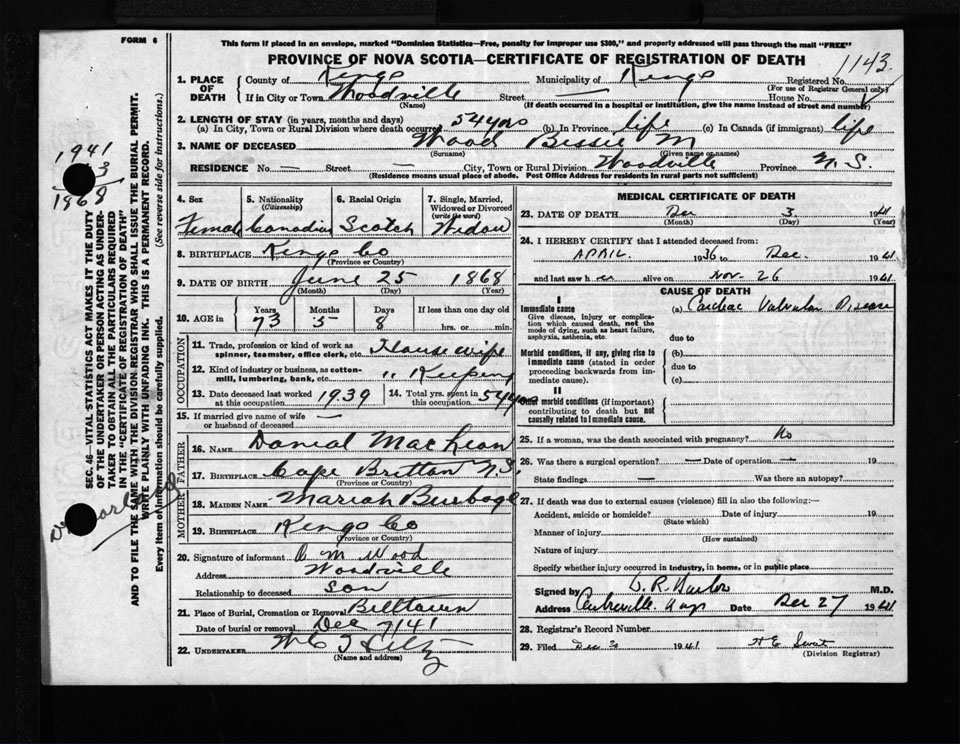 FORM 6
This form if placed in an envelope, marked "Dominion Statistics—Free, penalty for improper use $300," and properly addressed will pass through the mail "FREE"
PROVINCE OF NOVA SCOTIA—CERTIFICATE OF REGISTRATION OF DEATH
1143
1. PLACE OF DEATH County of Kings Municipality of Kings Registered No.
(For use of Registrar General only)
If in City or Town Woodville Street — House No.
(Name) (If death occurred in a hospital or institution, give the name instead of street and number)
2. LENGTH OF STAY (in years, months and days)
(a) In City, Town or Rural Division where death occurred 54 yrs (b) In Province life (c) In Canada (if immigrant) life
3. NAME OF DECEASED Wood Bessie M
(Surname) (Given name or names)
RESIDENCE No. — Street — City, Town or Rural Division Woodville Province N.S.
(Residence means usual place of abode. Post Office Address for residents in rural parts not sufficient)
4. Sex Female
5. Nationality (Citizenship) Canadian
6. Racial Origin Scotch
7. Single, Married, Widowed or Divorced (write the word) Widow
8. BIRTHPLACE Kings Co
(Province or Country)
9. DATE OF BIRTH June 25 1868
(Month) (Day) (Year)
10. AGE in Years 73 Months 5 Days 8 If less than one day old
hrs. or min.
OCCUPATION
11. Trade, profession or kind of work as spinner, teamster, office clerk, etc. House wife
12. Kind of industry or business, as cotton-mill, lumbering, bank, etc. " Keeping
13. Date deceased last worked at this occupation 1939
14. Total yrs. spent in this occupation 54 yrs
15. If married give name of wife or husband of deceased —
FATHER
16. NAME Danial MacLean
17. BIRTHPLACE Cape Brittan N.S
(Province or Country)
MOTHER
18. MAIDEN NAME Mariah Burbage
19. BIRTHPLACE Kings Co
(Province or Country)
20. Signature of informant M Wood
Address Woodville
Relationship to deceased Son
21. Place of Burial, Cremation or Removal Billtown
Date of burial or removal Dec 7/41
22. UNDERTAKER
(Name and address)
MEDICAL CERTIFICATE OF DEATH
23. DATE OF DEATH Dec 3 1941
(Month) (Day) (Year)
24. I HEREBY CERTIFY that I attended deceased from:
APRIL 1936 to Dec. 1941
and last saw her alive on Nov. 26 1941
CAUSE OF DEATH
I
Immediate cause
Give disease, injury or complication which caused death, not the mode of dying, such as heart failure, asphyxia, asthenia, etc.
(a) Cardiac Valvular Disease
due to
Morbid conditions, if any, giving rise to immediate cause (stated in order proceeding backwards from immediate cause).
(b)
due to
(c)
II
Other morbid conditions (if important) contributing to death but not causally related to immediate cause.
25. If a woman, was the death associated with pregnancy? No
26. Was there a surgical operation? — Date of operation — 19
State findings — Was there an autopsy?
27. If death was due to external causes (violence) fill in also the following:—
Accident, suicide or homicide? Date of injury 19
(State which)
Manner of injury
(How sustained)
Nature of injury
Specify whether injury occurred in industry, in home, or in public place
Signed by M.D.
Address Centreville Date Dec 27 1941
28. Registrar's Record Number
29. Filed Dec 1941
(Division Registrar)
1941
3
1868
SEC. 46—VITAL STATISTICS ACT MAKES IT THE DUTY
OF THE UNDERTAKER OR PERSON ACTING AS UNDER-
TAKER TO OBTAIN ALL THE PARTICULARS REQUIRED
IN THE "CERTIFICATE OF REGISTRATION OF DEATH"
AND TO FILE THE SAME WITH THE DIVISION REGISTRAR WHO SHALL ISSUE THE BURIAL PERMIT.
WRITE PLAINLY WITH UNFADING INK. THIS IS A PERMANENT RECORD.
Every item of information should be carefully supplied. (See reverse side for instructions.)